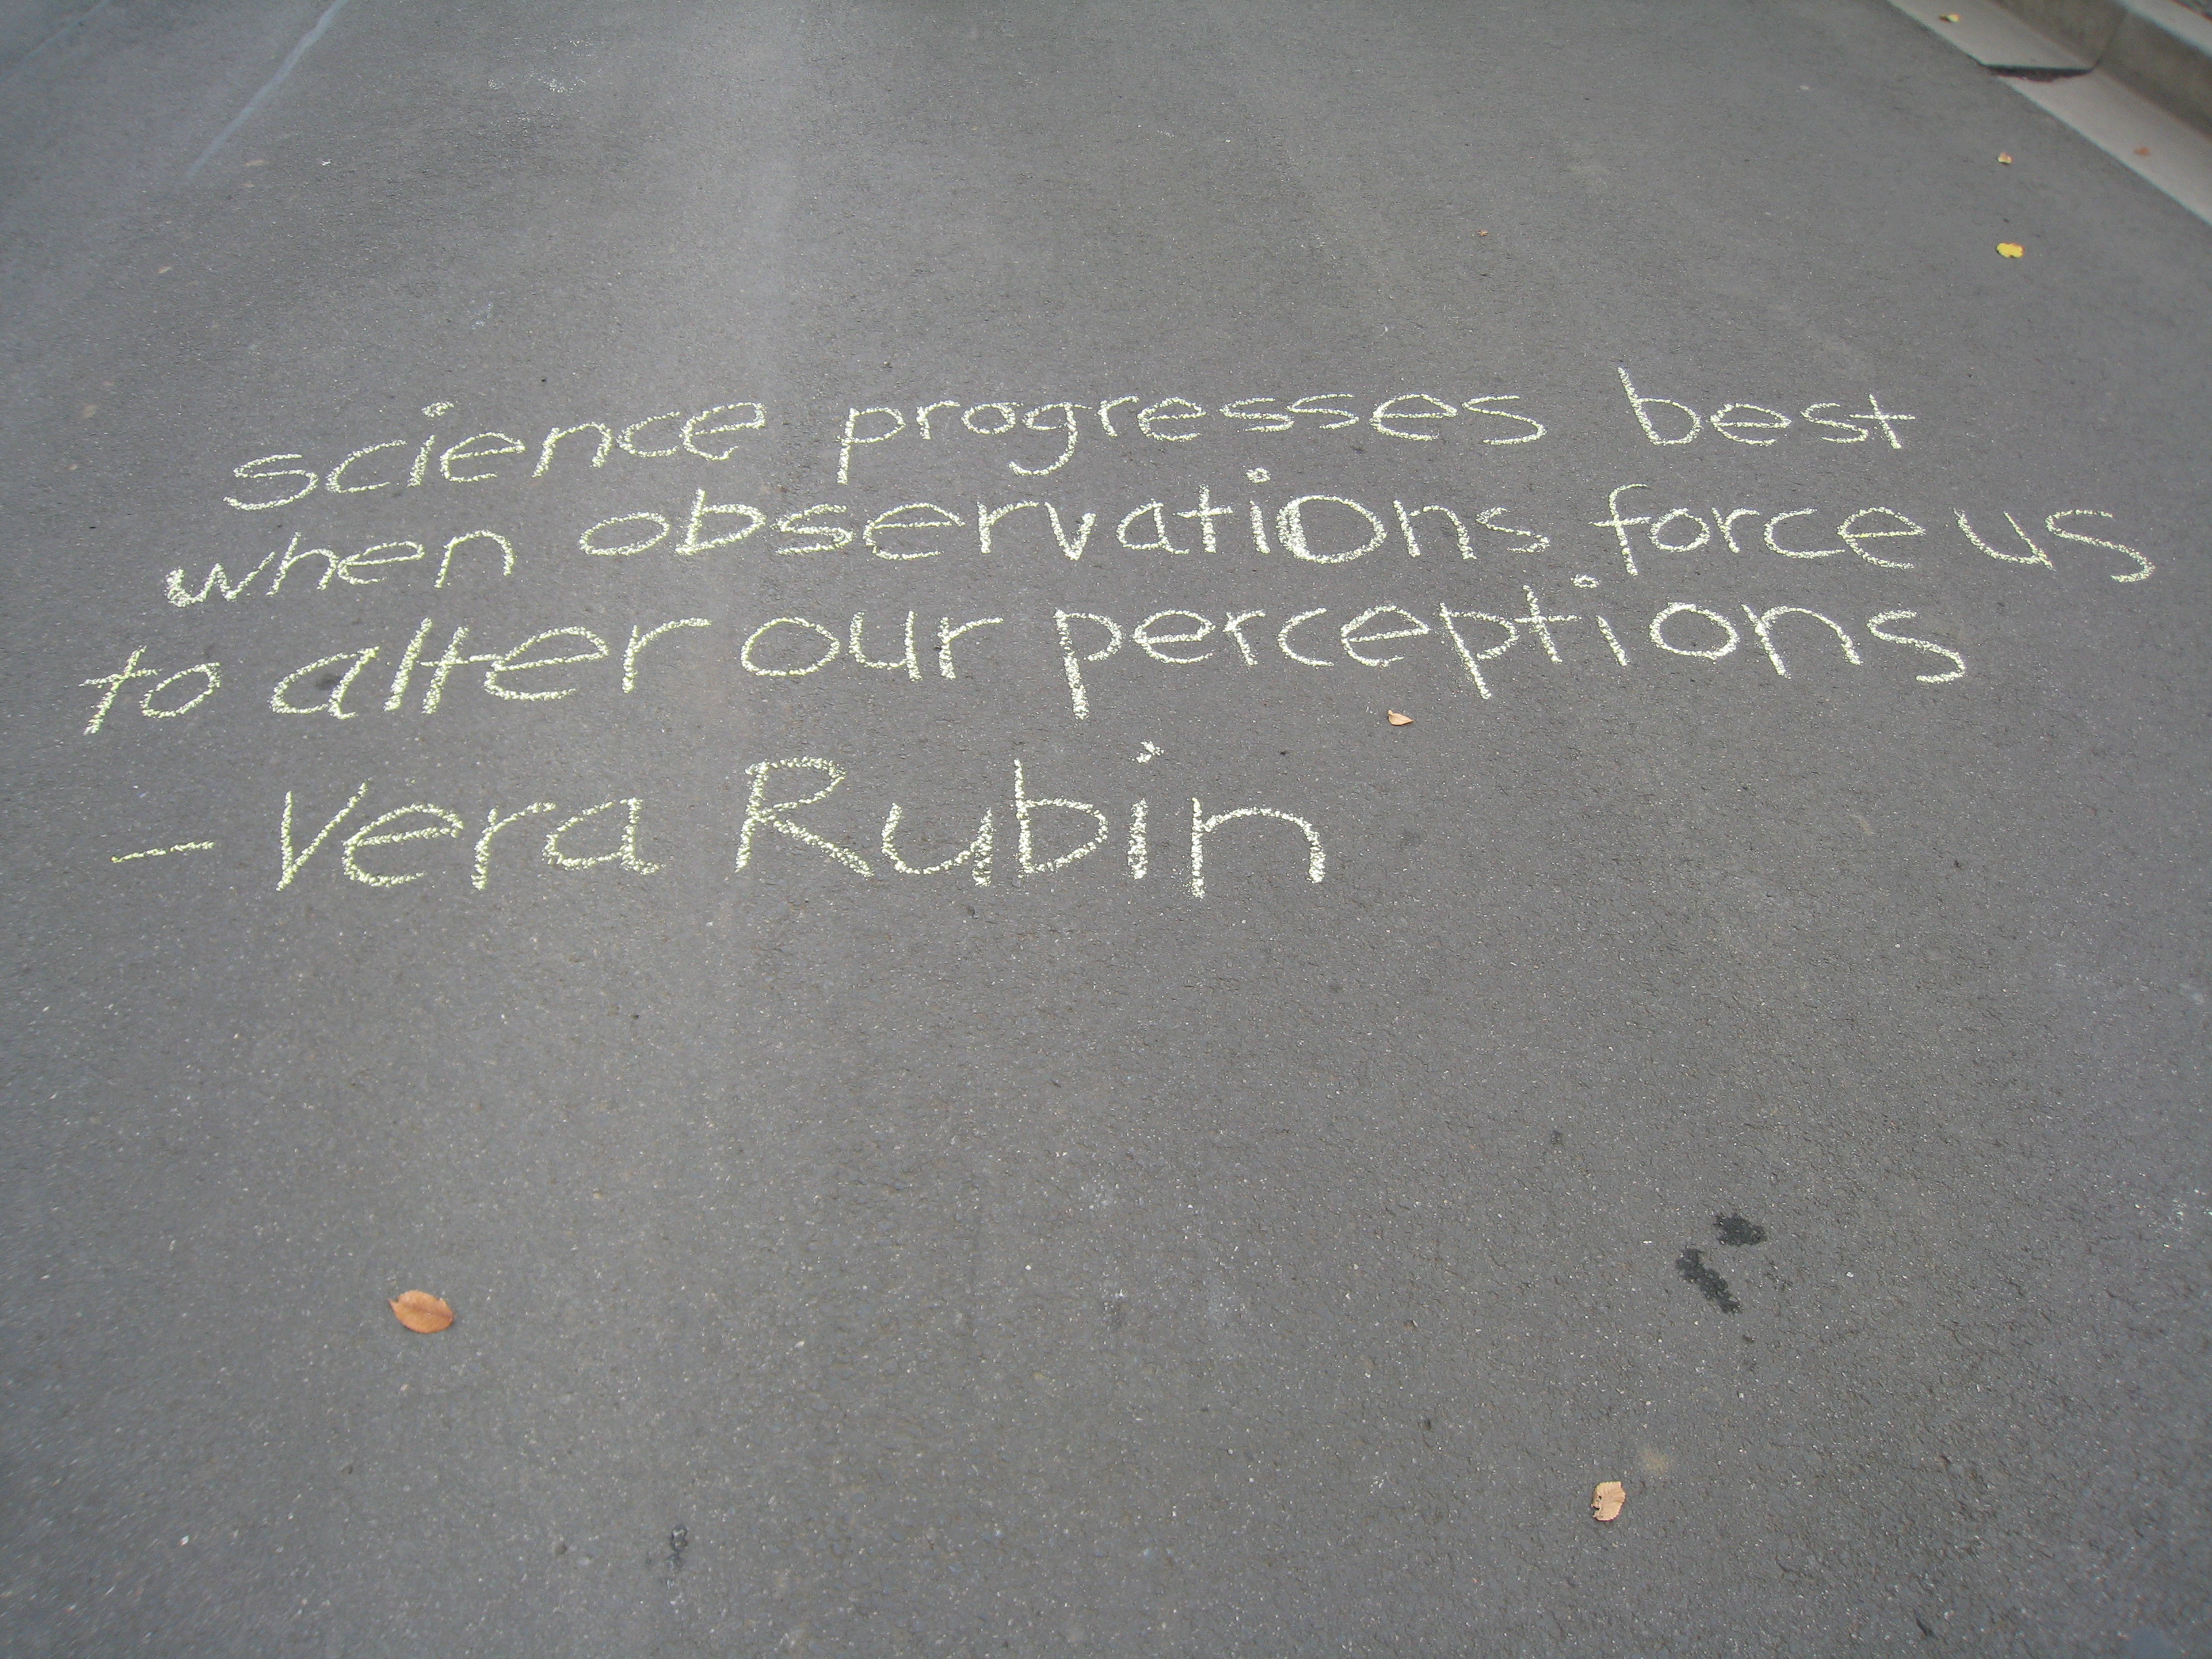 science progresses best
when observations force us
to alter our perceptions
- Vera Rubin